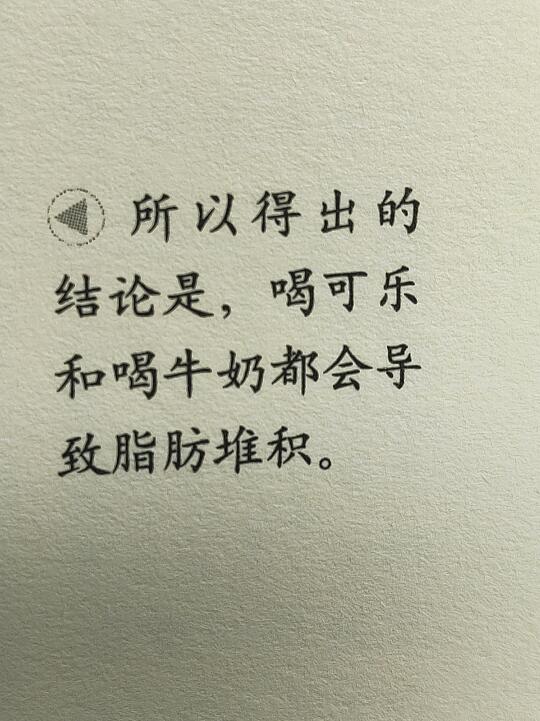 所以得出的
结论是，喝可乐
和喝牛奶都会导
致脂肪堆积。